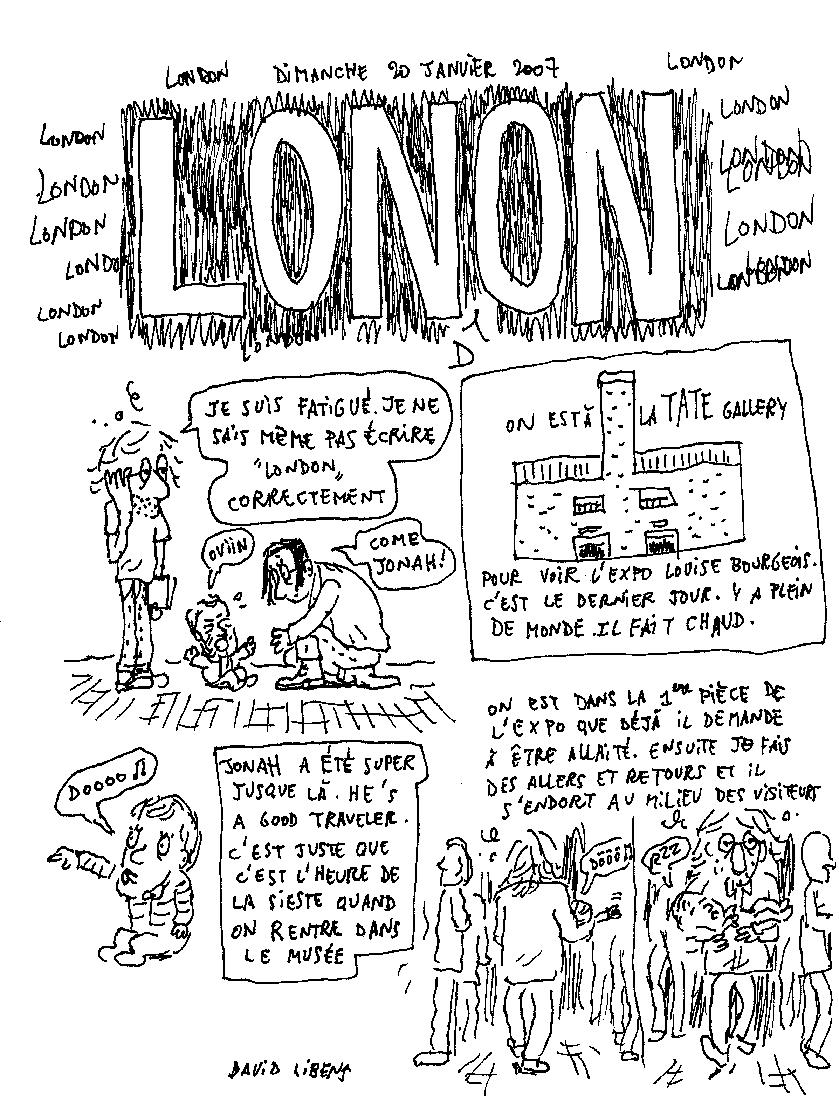 LONDON
DIMANCHE 20 JANVIER 2007
LONDON
LONON
D
LONDON
LONDON
LONDON
LONDON
LONDON
LONDON
LONDON
LONDON
LONDON
LONDON
LONDON
LONDON
LONDON
JE SUIS FATIGUÉ. JE NE
SAIS MÊME PAS ÉCRIRE
"LONDON"
CORRECTEMENT
OUIIN
COME
JONAH!
ON EST À LA TATE GALLERY
POUR VOIR L'EXPO LOUISE BOURGEOIS.
C'EST LE DERNIER JOUR. Y A PLEIN
DE MONDE. IL FAIT CHAUD.
DOOOO
JONAH A ÉTÉ SUPER
JUSQUE LÀ. HE'S
A GOOD TRAVELER.
C'EST JUSTE QUE
C'EST L'HEURE DE
LA SIESTE QUAND
ON RENTRE DANS
LE MUSÉE
ON EST DANS LA 1ère PIÈCE DE
L'EXPO QUE DÉJÀ IL DEMANDE
À ÊTRE ALLAITÉ. ENSUITE JE FAIS
DES ALLERS ET RETOURS ET IL
S'ENDORT AU MILIEU DES VISITEURS
DÖÖÖÖ
RZZ
DAVID LIBENS